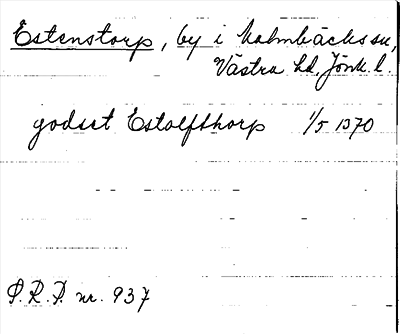 Estenstorp, by i Malmbäcks sn,
Västra hd, Jönk. l.
godset Estolfthorp 1/5 1370
S.R.P. nr. 937